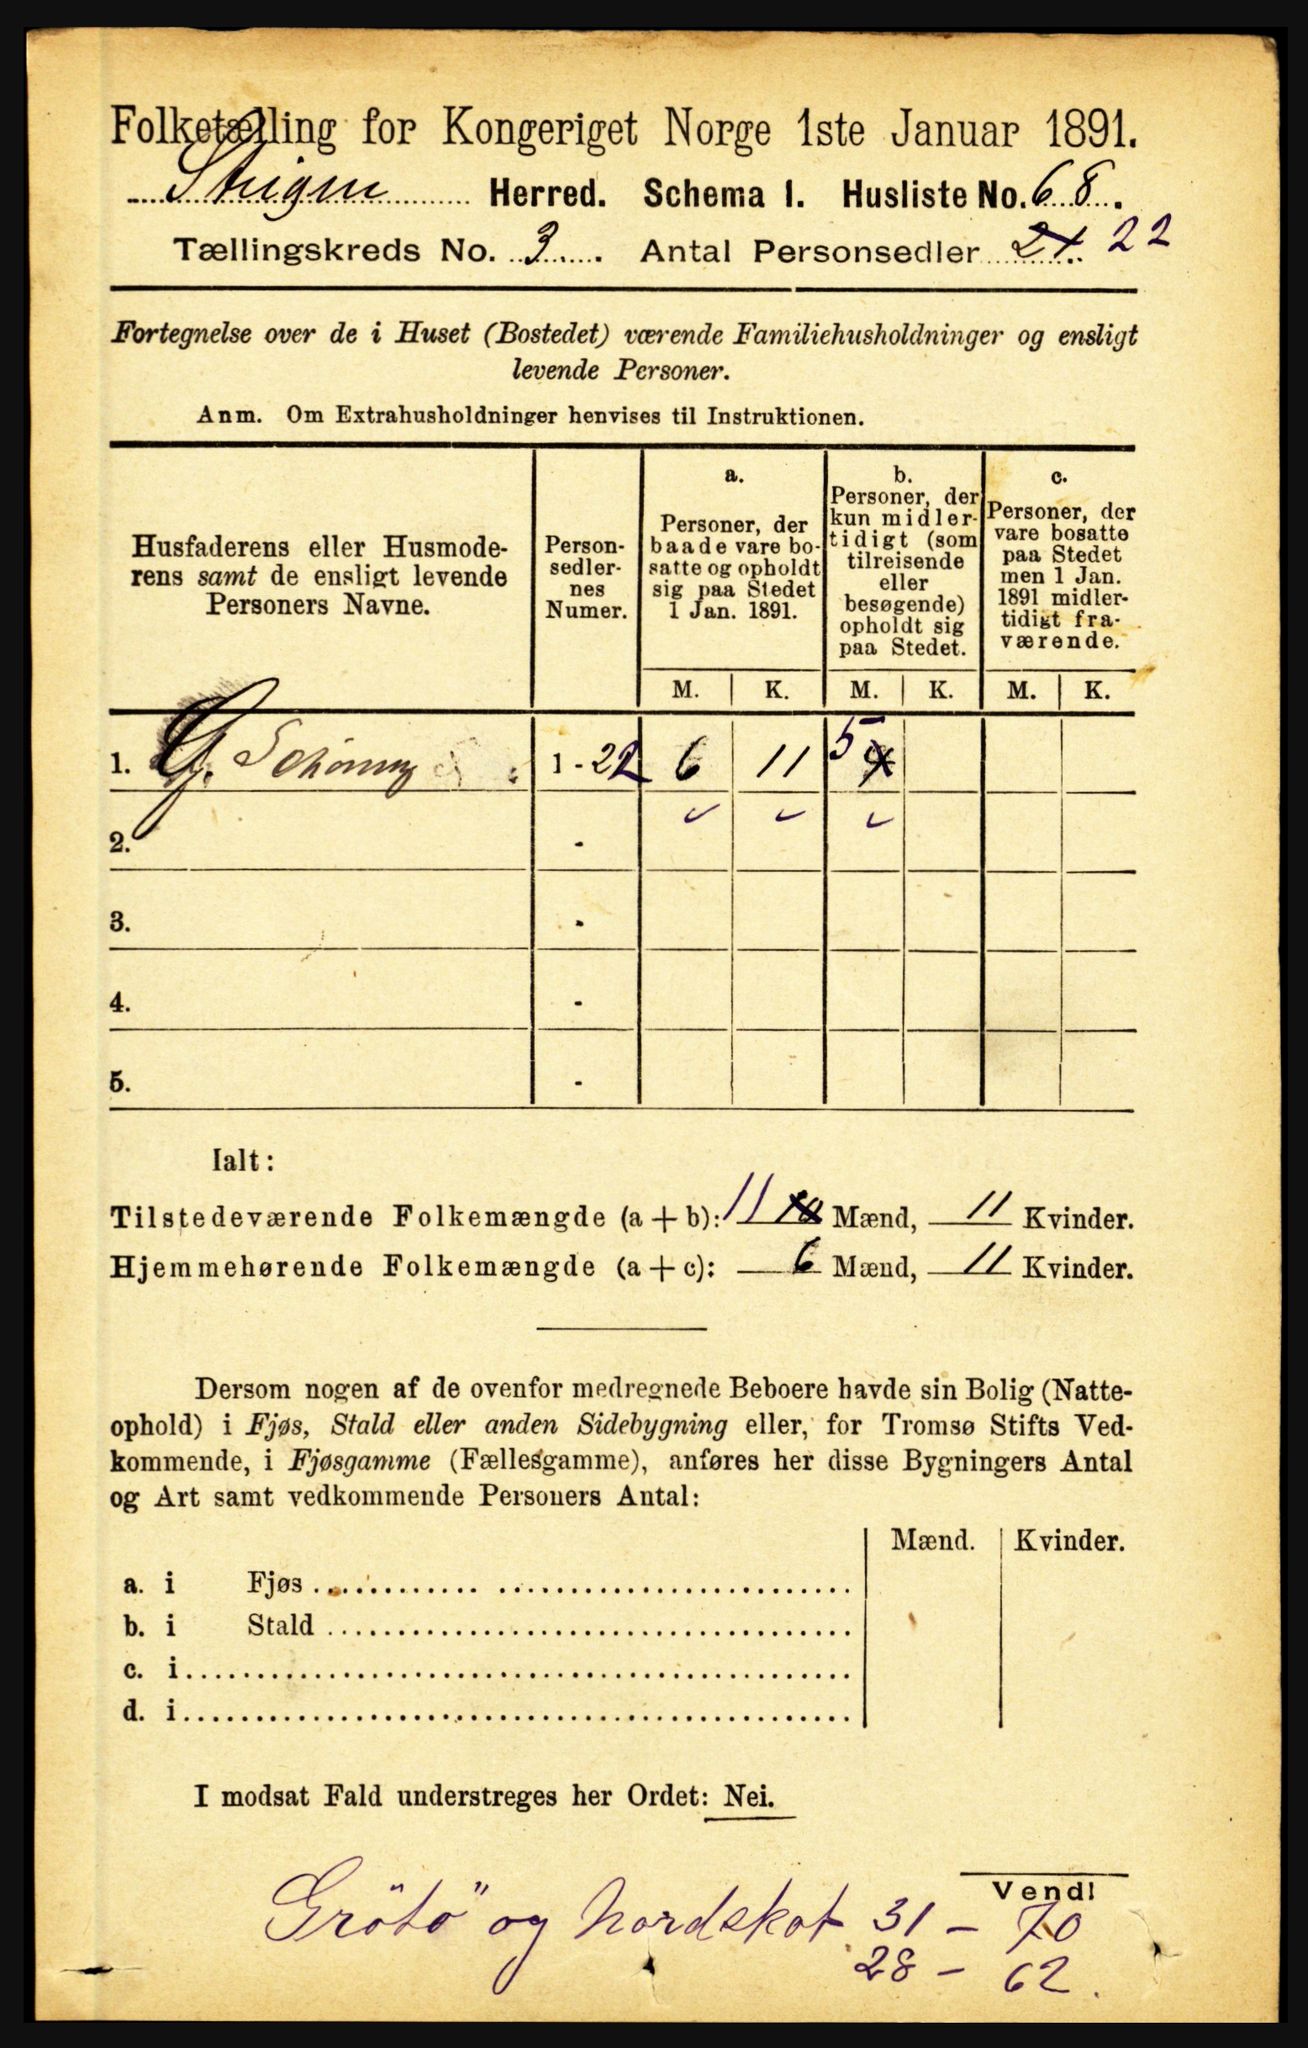 Folketælling for Kongeriget Norge 1ste Januar 1891.
Steigen Herred. Schema I. Husliste No. 68.
Tællingskreds No. 3. Antal Personsedler 21 22
Fortegnelse over de i Huset (Bostedet) værende Familiehusholdninger og ensligt
levende Personer.
Anm. Om Extrahusholdninger henvises til Instruktionen.
Husfaderens eller Husmode-
rens samt de ensligt levende
Personers Navne.
Person-
sedler-
nes
Numer.
a.
Personer, der
baade vare bo-
satte og opholdt
sig paa Stedet
1 Jan. 1891.
b.
Personer, der
kun midler-
tidigt (som
tilreisende
eller
besøgende)
opholdt sig
paa Stedet.
c.
Personer, der
vare bosatte
paa Stedet
men 1 Jan.
1891 midler-
tidigt fra-
værende.
M. K. M. K. M. K.
1. G. Schøning 1 - 22 6 11 5
2. -
3. -
4. -
5. -
Ialt:
Tilstedeværende Folkemængde (a + b): 11 10 Mænd, 11 Kvinder.
Hjemmehørende Folkemængde (a + c): 6 Mænd, 11 Kvinder.
Dersom nogen af de ovenfor medregnede Beboere havde sin Bolig (Natte-
ophold) i Fjøs, Stald eller anden Sidebygning eller, for Tromsø Stifts Ved-
kommende, i Fjøsgamme (Fællesgamme), anføres her disse Bygningers Antal
og Art samt vedkommende Personers Antal:
Mænd. Kvinder.
a. i Fjøs
b. i Stald
c. i
d. i
I modsat Fald understreges her Ordet: Nei.
Vend!
Grötö og Nordskot 31 - 70
28 - 62.